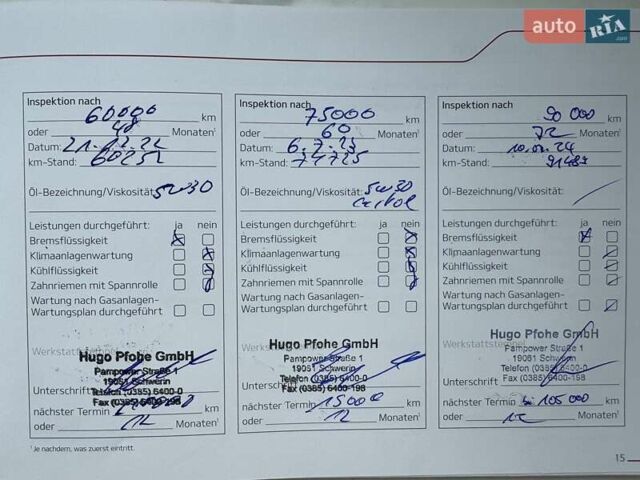 auto RIA.com
Inspektion nach 60000 km
oder 48 Monaten¹
Datum: 21.12.22
km-Stand: 60252
Öl-Bezeichnung/Viskosität: 5W30
Leistungen durchgeführt: ja nein
Bremsflüssigkeit
Klimaanlagenwartung
Kühlflüssigkeit
Zahnriemen mit Spannrolle
Wartung nach Gasanlagen-
Wartungsplan durchgeführt
Hugo Pfohe GmbH
Pampower Straße 1
19061 Schwerin
Telefon (0385) 6400-0
Fax (0385) 6400-198
Unterschrift
nächster Termin km
oder 12 Monaten¹
Inspektion nach 75000 km
oder 60 Monaten¹
Datum: 6.7.23
km-Stand: 74725
Öl-Bezeichnung/Viskosität: 5W30
Leistungen durchgeführt: ja nein
Bremsflüssigkeit
Klimaanlagenwartung
Kühlflüssigkeit
Zahnriemen mit Spannrolle
Wartung nach Gasanlagen-
Wartungsplan durchgeführt
Hugo Pfohe GmbH
Pampower Straße 1
19061 Schwerin
Telefon (0385) 6400-0
Fax (0385) 6400-198
Unterschrift
nächster Termin 15000 km
oder 12 Monaten¹
Inspektion nach 90 000 km
oder 72 Monaten¹
Datum:
km-Stand: 91489
Öl-Bezeichnung/Viskosität:
Leistungen durchgeführt: ja nein
Bremsflüssigkeit
Klimaanlagenwartung
Kühlflüssigkeit
Zahnriemen mit Spannrolle
Wartung nach Gasanlagen-
Wartungsplan durchgeführt
Hugo Pfohe GmbH
Pampower Straße 1
19061 Schwerin
Telefon (0385) 6400-0
Fax (0385) 6400-198
Unterschrift
nächster Termin 105 000 km
oder 12 Monaten¹
¹ Je nachdem, was zuerst eintritt.
15